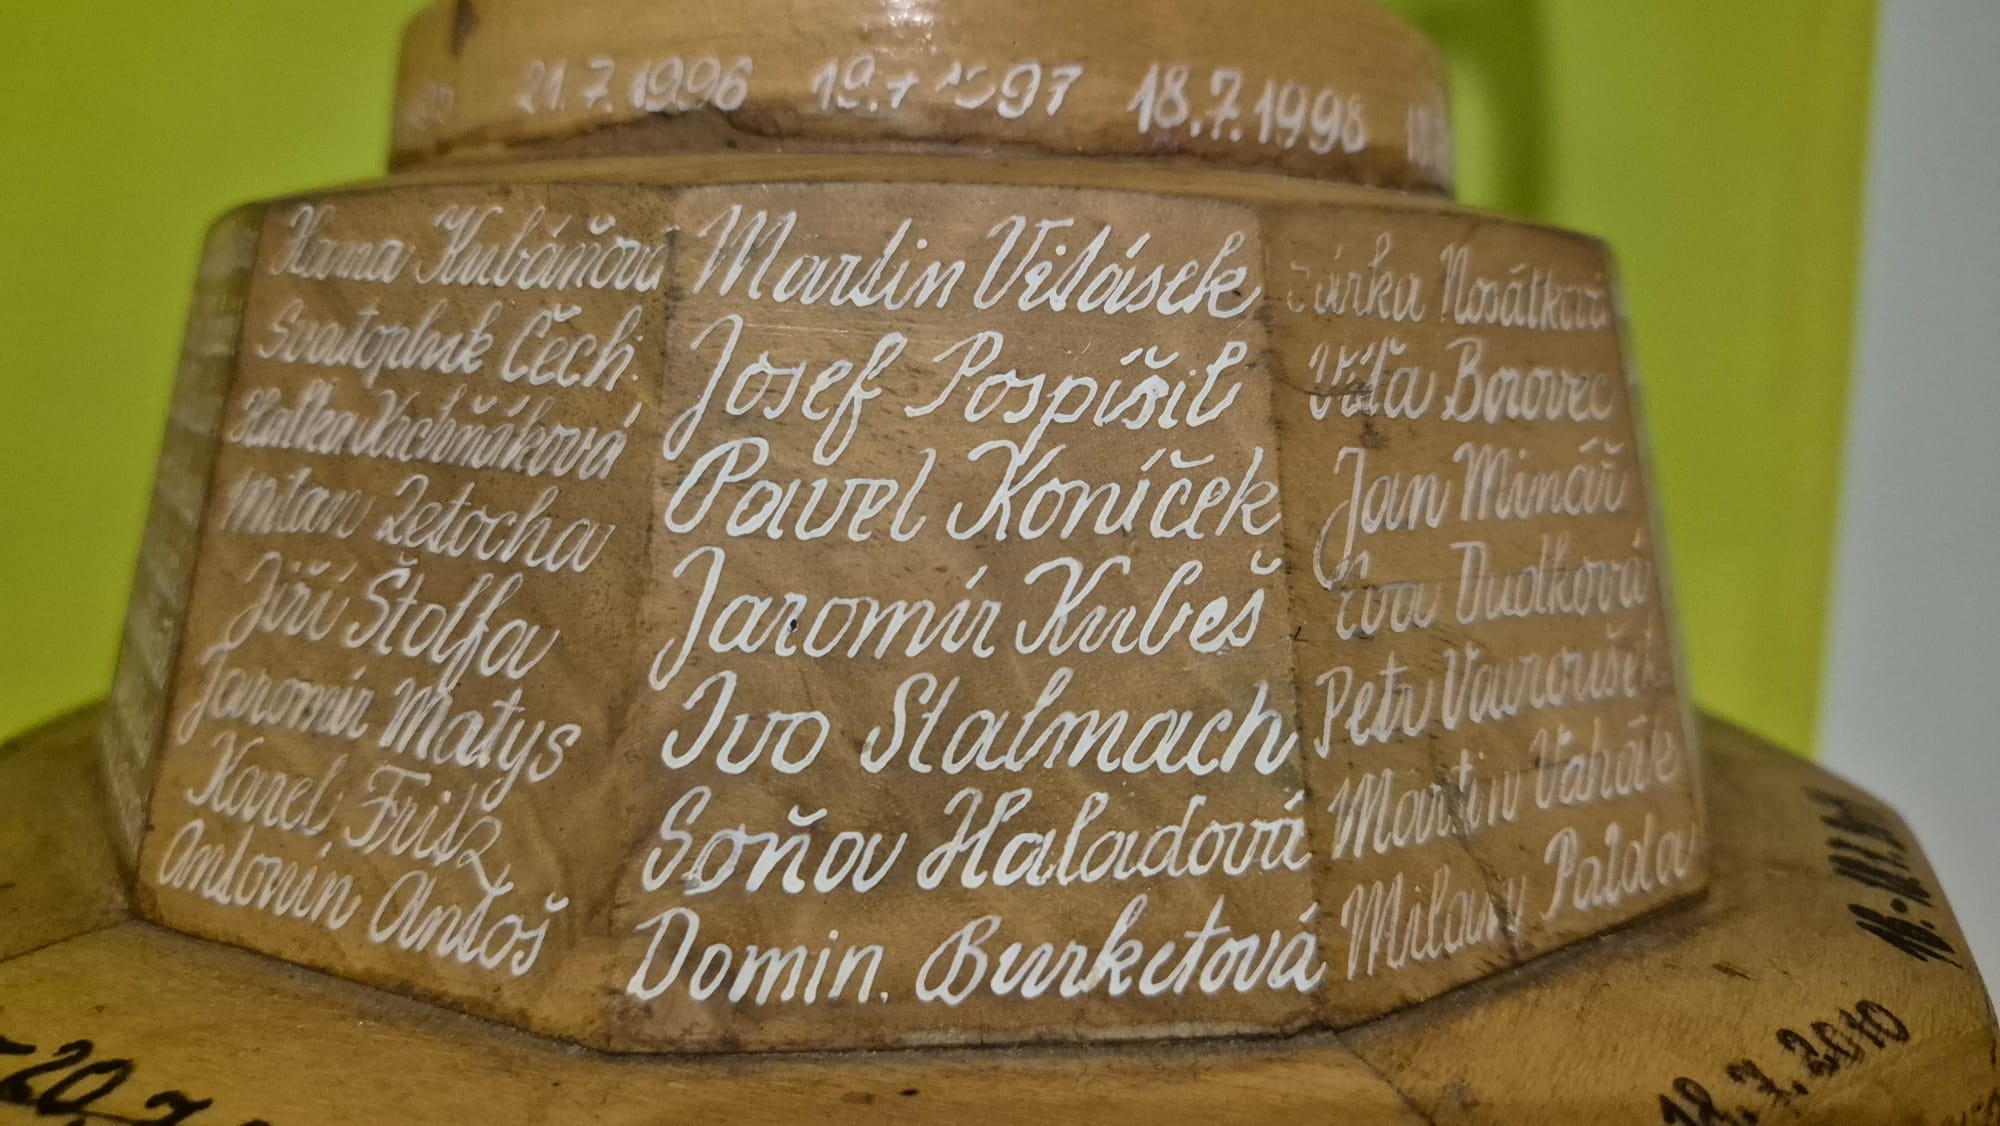 21.7.1996 19.7.1997 18.7.1998
Hana Kubáňová
Svatopluk Čech
Milan Zetocha
Jiří Štolfa
Jaromír Matys
Karel Fritz
Antonín Antoš
Martin Vitásek
Josef Pospíšil
Pavel Koníček
Jaromír Kubeš
Ivo Stalmach
Soňa Haladová
Domin. Burketová
Šárka Nosálková
Víťa Borovec
Jan Minář
Eva Dudková
Petr Vavroušek
Martin
Milan Palda
18.7.2010